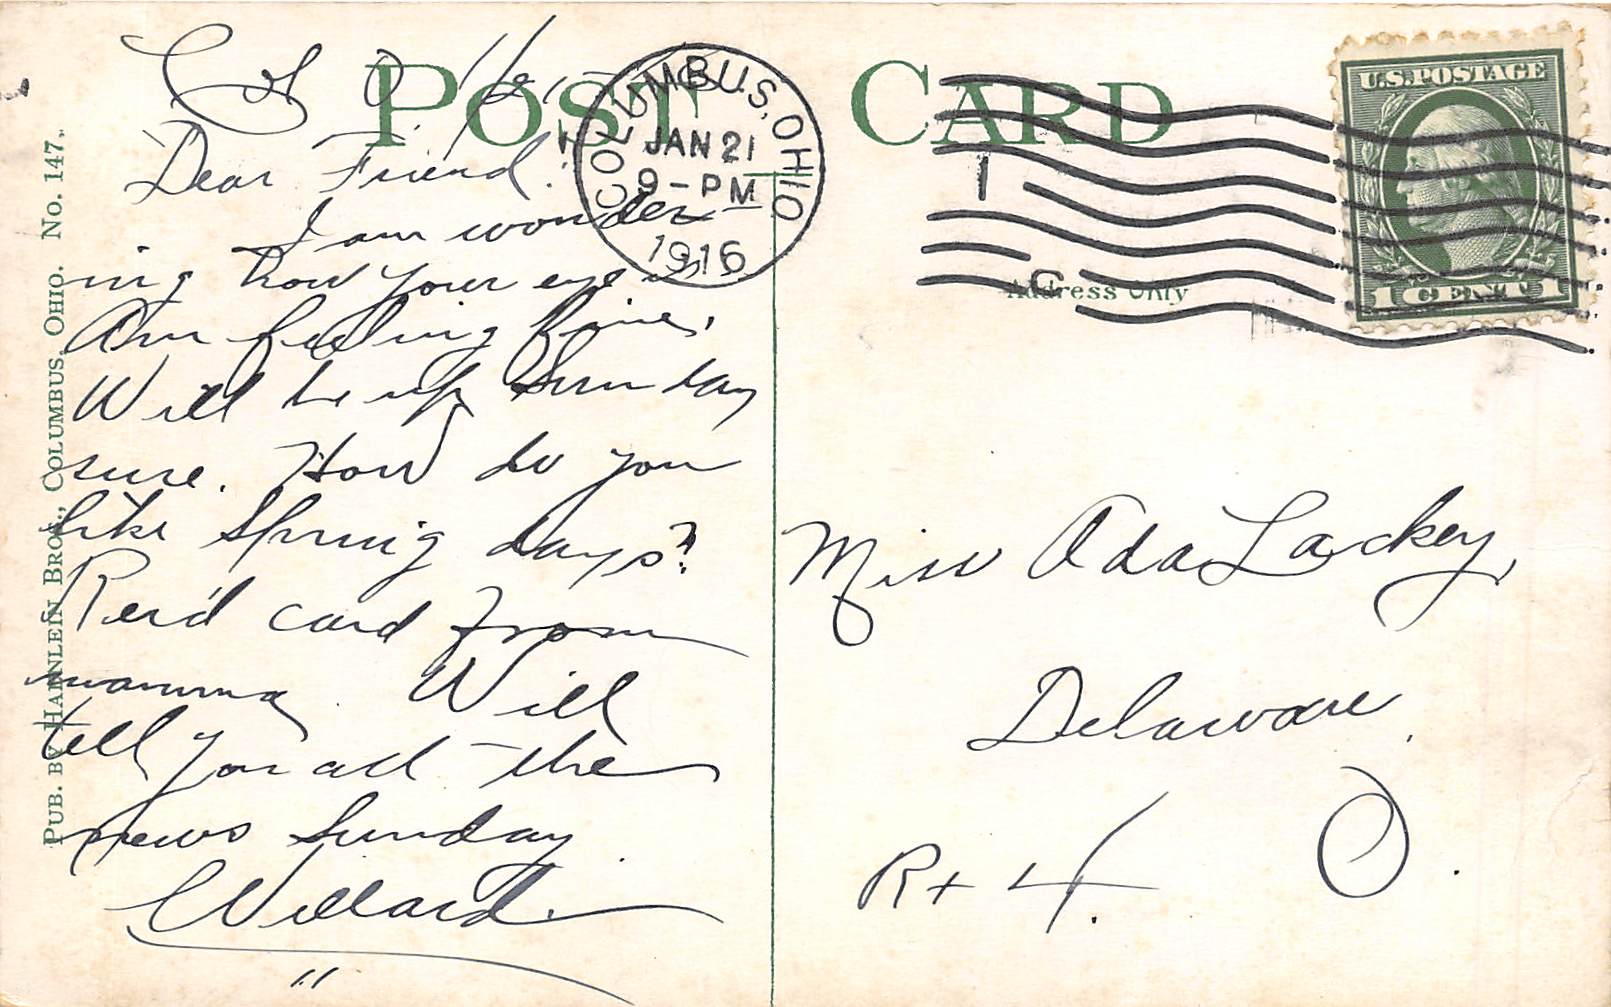 POST CARD
Col O
Dear Friend:
I am wonder-
ing how your eye is
Am feeling fine.
Will be up Sunday
sure. How do you
like Spring days?
Rec'd card from
mamma. Will
tell you all the
news Sunday.
Willard.
"
PUB. BY HANNLEIN BROS., COLUMBUS, OHIO. No. 147.
COLUMBUS, OHIO
JAN 21
9-PM
1916
1
U.S. POSTAGE
1 CENT 1
Address Only
Miss Ada Lackey,
Delaware.
Rt 4. O.